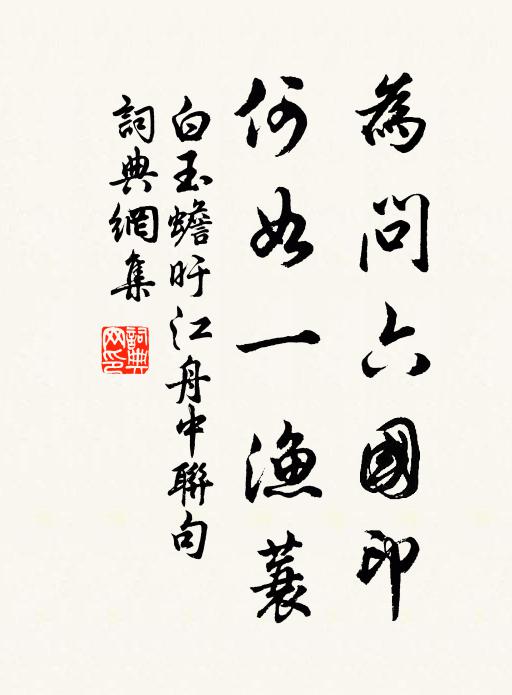 為問六國印
何如一漁蓑
白玉蟾旴江舟中聯句
詞典網集
詞典網印